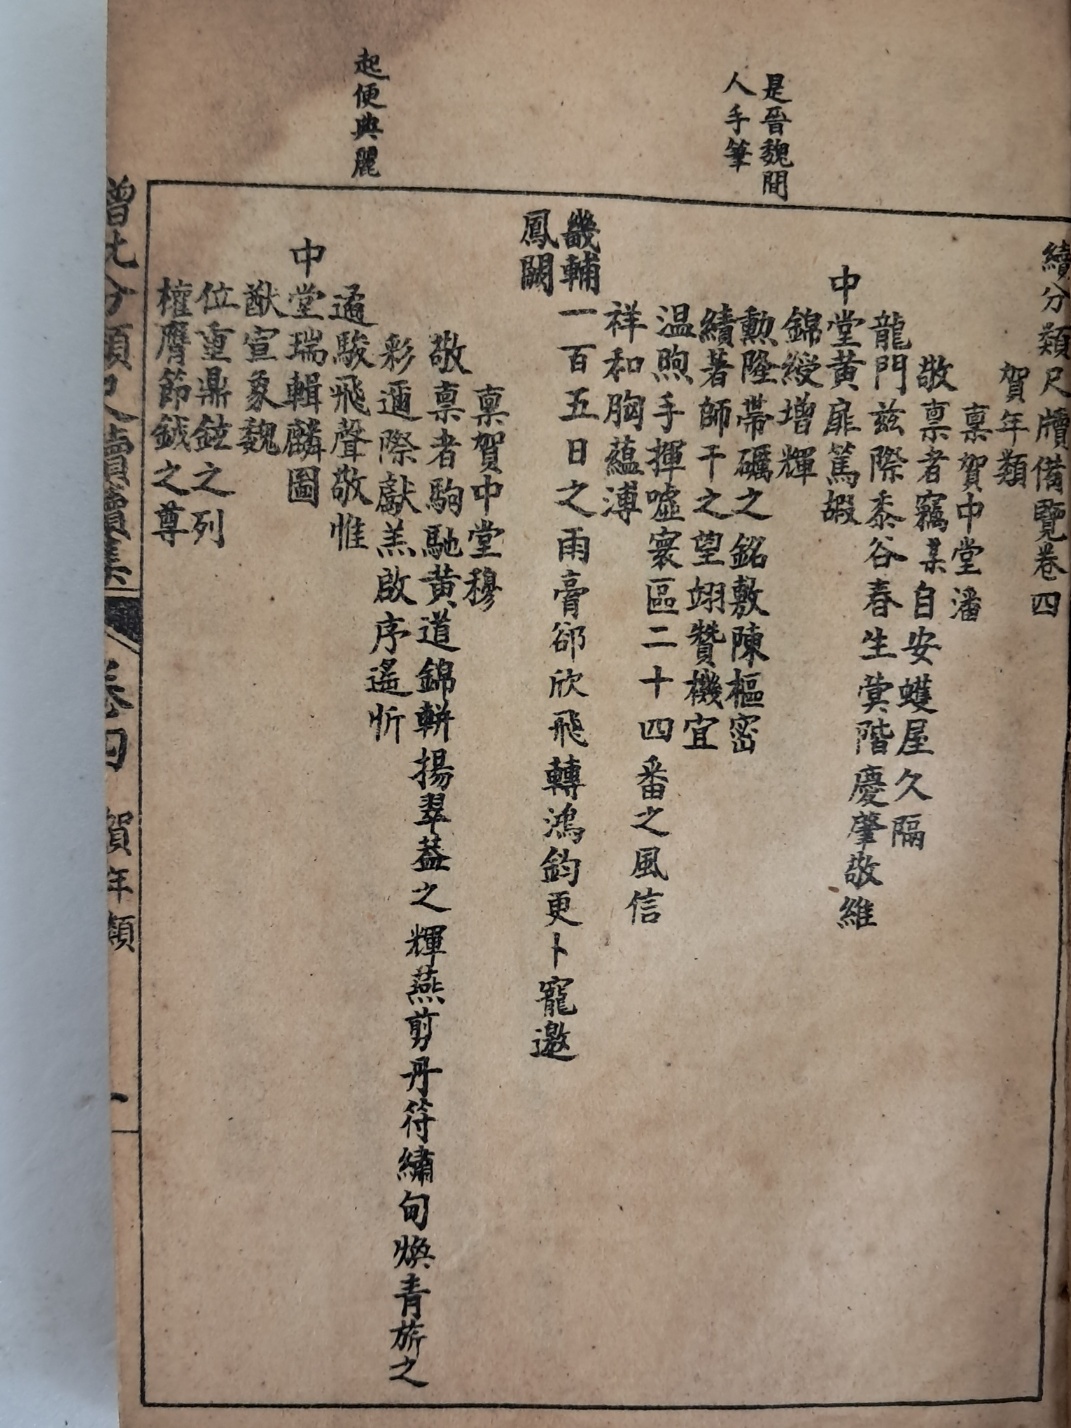 是晉魏間
人手筆
起便典麗
續分類尺牘備覽卷四
賀年類
稟賀中堂潘
敬稟者竊某自安蠖屋久隔
龍門兹際黍谷春生蓂階慶肇敬維
中堂黄扉篤嘏
錦綬增輝
勳隆帶礪之銘敷陳樞密
績著師干之望翊贊機宜
温煦手揮噓寰區二十四番之風信
祥和胸蘊溥
畿輔一百五日之雨膏郤欣飛轉鴻鈞更卜寵邀
鳳闕
稟賀中堂穆
敬稟者駒馳黄道錦軿揚翠葢之輝燕剪丹符繡甸煥青旂之
彩邇際獻羔啟序遙忻
遹駿飛聲敬惟
中堂瑞輯麟圖
猷宣象魏
位重鼎鉉之列
權膺節鉞之尊
增廣分類尺牘續集
卷四
賀年類
一